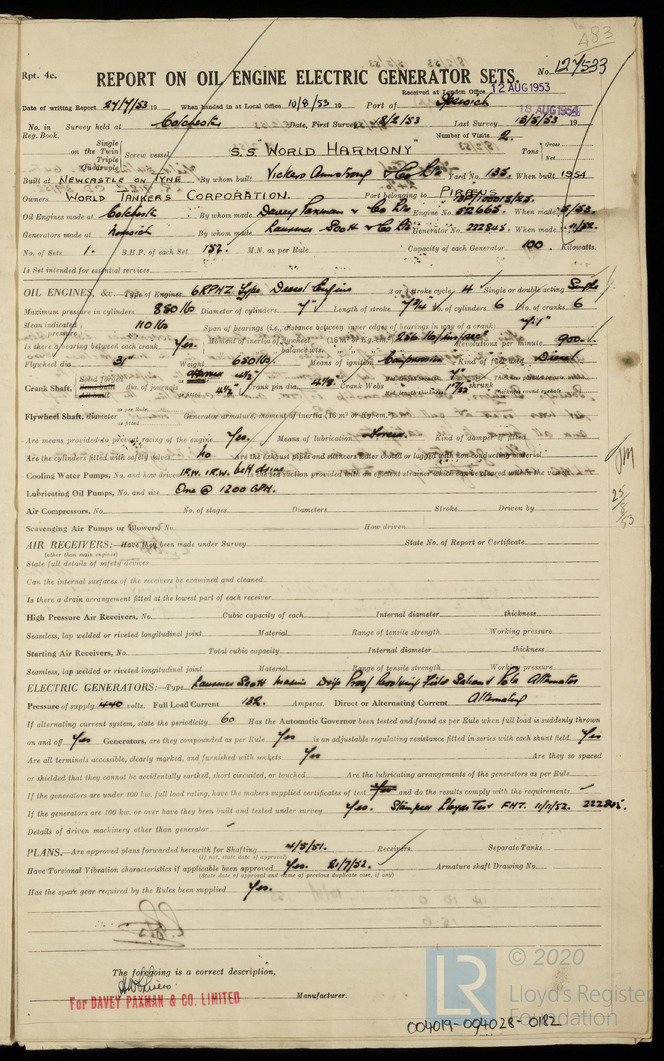 483
Rpt. 4c.
REPORT ON OIL ENGINE ELECTRIC GENERATOR SETS.
No. 127533
Received at London Office 12 AUG 1953
18 AUG 1954
Date of writing Report 27/7/53 19 When handed in at Local Office 10/8/53 19 Port of Ipswich
No. in Survey held at Colchester Date, First Survey 18/2/53 Last Survey 13/5/53 19
Reg. Book. Number of Visits 2.
Single
on the Twin
Triple
Quadruple
Screw vessel S.S. "WORLD HARMONY" Tons Gross
Net
Built at NEWCASTLE ON TYNE By whom built Vickers Armstrong & Co Ltd Yard No. 135. When built 1954
Owners WORLD TANKERS CORPORATION. Port belonging to PIRAEUS
Oil Engines made at Colchester By whom made Davey Paxman & Co Ltd Engine No. 52665. When made 5/53.
Generators made at Norwich By whom made Laurence Scott & Co Ltd Generator No. 222845. When made 11/52.
No. of Sets 1. B.H.P. of each Set 152. M.N. as per Rule Capacity of each Generator 100 Kilowatts.
Is Set intended for essential services
OIL ENGINES, &c. Type of Engines 6RPHZ Type Diesel Engine 2 or 4 stroke cycle 4 Single or double acting Single
Maximum pressure in cylinders 850 lb Diameter of cylinders 7" Length of stroke 7 3/4" No. of cylinders 6 No. of cranks 6
Mean indicated pressure 110 lb Span of bearings (i.e., distance between inner edges of bearings in way of a crank)
Is there a bearing between each crank Yes. Moment of inertia of flywheel Revolutions per minute 900.
Flywheel dia. 31" Weight 650 lb. Means of ignition Compression Kind of fuel used Diesel
Crank Shaft, Solid forged dia. of journals 4½" Crank pin dia. 4 1/8 Crank Webs shrunk
Flywheel Shaft, diameter as per Rule
as fitted
Generator armature, moment of inertia (16 m² or Kg.-cm.²)
Are means provided to prevent racing of the engine Yes. Means of lubrication Forced. Kind of damper if fitted
Are the cylinders fitted with safety valves No Are the exhaust pipes and silencers water cooled or lagged with non-conducting material
Cooling Water Pumps, No. and how driven 1F.W. 1R.W. belt drive
Lubricating Oil Pumps, No. and size One @ 1200 GPH.
Air Compressors, No. No. of stages Diameters Stroke Driven by
Scavenging Air Pumps or Blowers, No. How driven
AIR RECEIVERS:—Have they been made under Survey State No. of Report or Certificate
(other than main engines)
State full details of safety devices
Can the internal surfaces of the receivers be examined and cleaned
Is there a drain arrangement fitted at the lowest part of each receiver
High Pressure Air Receivers, No. Cubic capacity of each Internal diameter thickness
Seamless, lap welded or riveted longitudinal joint Material Range of tensile strength Working pressure
Starting Air Receivers, No. Total cubic capacity Internal diameter thickness
Seamless, lap welded or riveted longitudinal joint Material Range of tensile strength Working pressure
ELECTRIC GENERATORS:—Type Laurence Scott Marine Drip Proof Revolving Field Salient Pole Alternator
Pressure of supply 440 volts. Full Load Current Amperes. Direct or Alternating Current Alternating
If alternating current system, state the periodicity 60 Has the Automatic Governor been tested and found as per Rule when full load is suddenly thrown
on and off Yes Generators, are they compounded as per Rule Yes is an adjustable regulating resistance fitted in series with each shunt field Yes
Are all terminals accessible, clearly marked, and furnished with sockets Yes Are they so spaced
or shielded that they cannot be accidentally earthed, short circuited, or touched Are the lubricating arrangements of the generators as per Rule
If the generators are under 100 kw. full load rating, have the makers supplied certificates of test and do the results comply with the requirements
If the generators are 100 kw. or over have they been built and tested under survey Yes. Stamped Lloyds Test FHT. 11/11/52. 222845.
Details of driven machinery other than generator
PLANS.—Are approved plans forwarded herewith for Shafting 4/5/51. Receivers Separate Tanks
(If not, state date of approval)
Have Torsional Vibration characteristics if applicable been approved Yes. 21/7/52. Armature shaft Drawing No.
(State date of approval and name of previous duplicate case, if any)
Has the spare gear required by the Rules been supplied Yes.
The foregoing is a correct description,
For DAVEY PAXMAN & CO. LIMITED Manufacturer.
25/8/53
LR
© 2020
Lloyd's Register
Foundation
004019-004028-0182